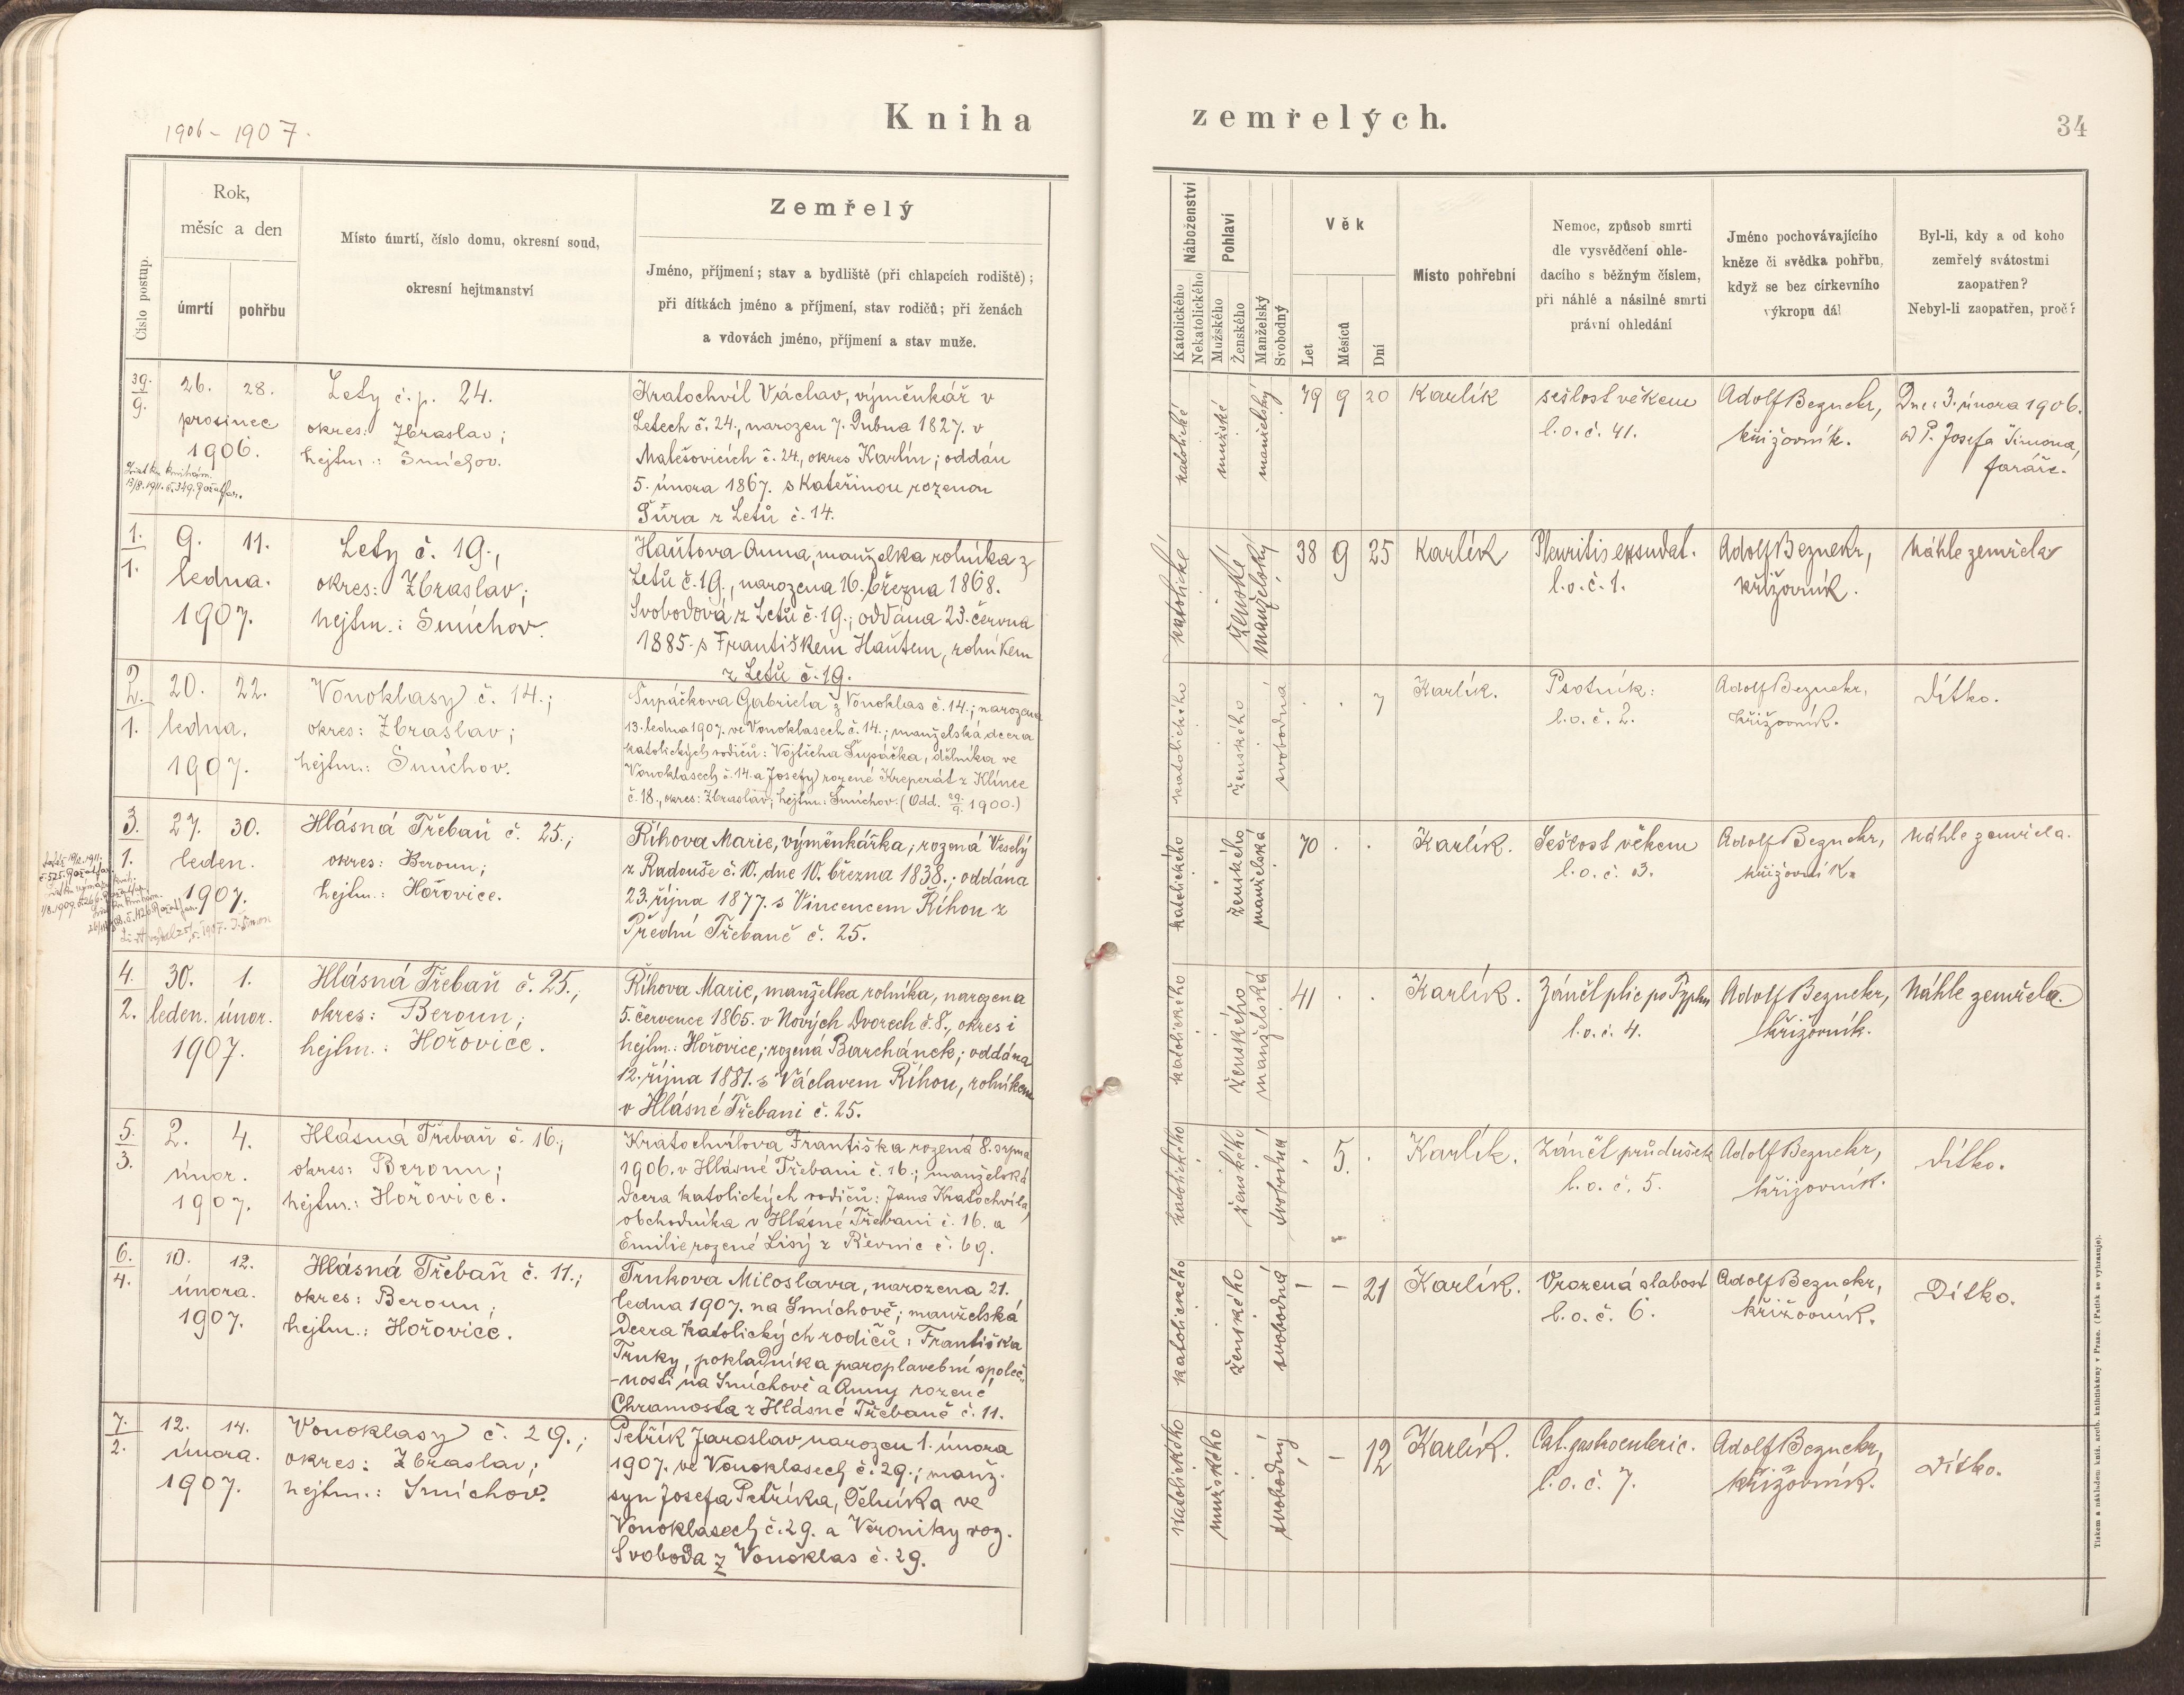 1906 - 1907.
Kniha
zemřelých.
34
Číslo postup.
Rok,
měsíc a den
úmrtí
pohřbu
Místo úmrtí, číslo domu, okresní soud,
okresní hejtmanství
Zemřelý
Jméno, příjmení; stav a bydliště (při chlapcích rodiště);
při dítkách jméno a příjmení, stav rodičů; při ženách
a vdovách jméno, příjmení a stav muže.
Náboženství
Katolického
Nekatolického
Pohlaví
Mužského
Ženského
Manželský
Svobodný
Věk
Let
Měsíců
Dní
Místo pohřební
Nemoc, způsob smrti
dle vysvědčení ohle-
dacího s běžným číslem,
při náhlé a násilné smrti
právní ohledání
Jméno pochovávajícího
kněze či svědka pohřbu,
když se bez církevního
výkropu dál
Byl-li, kdy a od koho
zemřelý svátostmi
zaopatřen?
Nebyl-li zaopatřen, proč?
39.
9.
26.
28.
prosinec
1906.
Lety č. p. 24.
okres: Zbraslav;
hejtm.: Smíchov.
Kratochvíl Václav, výměnkář v
Letech č. 24., narozen 7. Dubna 1827. v
Malešovicích č. 24., okres Karlín; oddán
5. února 1867. s Kateřinou rozenou
Šůra z Letů č. 14.
katolické
mužské
manželský
79
9
20
Karlík
sešlost věkem
l. o. č. 41.
Adolf Beznehr,
křižovník.
Dne: 3. února 1906.
od P. Josefa Šimona,
faráře.
1.
1.
9.
11.
ledna.
1907.
Lety č. 19.,
okres: Zbraslav;
hejtm.: Smíchov.
Haůtova Anna, manželka rolníka z
Letů č. 19., narozena 16. března 1868.
Svobodová z Letů č. 19.; oddána 23. června
1885. s Františkem Haůtem, rolníkem
z Letů č. 19.
katolické
ženské
manželský
38
9
25
Karlík
Pleuritis exsudat.
l. o. č. 1.
Adolf Beznehr,
křižovník.
Náhle zemřela
2.
1.
20.
22.
ledna.
1907.
Vonoklasy č. 14.;
okres: Zbraslav;
hejtm.: Smíchov.
Šupáčkova Gabriela z Vonoklas č. 14.; narozena
13. ledna 1907. ve Vonoklasech č. 14.; manželská dcera
katolických rodičů: Vojtěcha Šupáčka, dělníka ve
Vonoklasech č. 14. a Josefy rozené Kreperát z Klínce
č. 18., okres: Zbraslav; hejtm.: Smíchov. (Odd. 29./9. 1900.)
katolického
ženského
svobodná
7
Karlík.
Psotník:
l. o. č. 2.
Adolf Beznehr,
křižovník.
Dítko.
3.
1.
27.
30.
leden.
1907.
Hlásná Třebaň č. 25.;
okres: Beroun;
hejtm.: Hořovice.
Říhova Marie, výměnkářka, rozená Veselý
z Radouše č. 10. dne 10. března 1838.; oddána
23. října 1877. s Vincencem Říhou z
Přední Třebaně č. 25.
katolického
ženského
manželská
70
Karlík.
Sešlost věkem
l. o. č. 3.
Adolf Beznehr,
křižovník.
Náhle zemřela.
4.
2.
30.
1.
leden.
únor.
1907.
Hlásná Třebaň č. 25.;
okres: Beroun;
hejtm.: Hořovice.
Říhova Marie, manželka rolníka, narozena
5. července 1865. v Nových Dvorech č. 8., okres i
hejtm.: Hořovice; rozená Barchánek; oddána
12. října 1881. s Václavem Říhou, rolníkem
v Hlásné Třebani č. 25.
katolického
ženského
manželská
41
Karlík.
Zánět plic po Typhu
l. o. č. 4.
Adolf Beznehr,
křižovník.
Náhle zemřela.
5.
3.
2.
4.
únor.
1907.
Hlásná Třebaň č. 16.;
okres: Beroun;
hejtm.: Hořovice.
Kratochvílova Františka rozená 8. srpna
1906. v Hlásné Třebani č. 16.; manželská
dcera katolických rodičů: Jana Kratochvíla,
obchodníka v Hlásné Třebani č. 16. a
Emilie rozené Lisý z Řevnic č. 69.
katolického
ženského
svobodná
5.
Karlík.
Zánět průdušek
l. o. č. 5.
Adolf Beznehr,
křižovník.
Dítko.
6.
4.
10.
12.
února.
1907.
Hlásná Třebaň č. 11.;
okres: Beroun;
hejtm.: Hořovice.
Trnkova Miloslava, narozena 21.
ledna 1907. na Smíchově; manželská
dcera katolických rodičů: Františka
Trnky, pokladníka paroplavební společ-
-nosti na Smíchově a Anny rozené
Chramosta z Hlásné Třebaně č. 11.
katolického
ženského
svobodná
-
-
21
Karlík.
Vrozená slabost
l. o. č. 6.
Adolf Beznehr,
křižovník.
Dítko.
7.
2.
12.
14.
února.
1907.
Vonoklasy č. 29.;
okres: Zbraslav;
hejtm.: Smíchov.
Petřík Jaroslav narozen 1. února
1907. ve Vonoklasech č. 29.; manž.
syn Josefa Petříka, Dělníka ve
Vonoklasech č. 29. a Veroniky roz.
Svoboda z Vonoklas č. 29.
katolického
mužského
svobodný
-
-
12
Karlík.
Cat. gastroenteric.
l. o. č. 7.
Adolf Beznehr,
křižovník.
Dítko.
Tiskem a nákladem kníž. arcib. knihtiskárny v Praze. (Patisk se vyhrazuje).